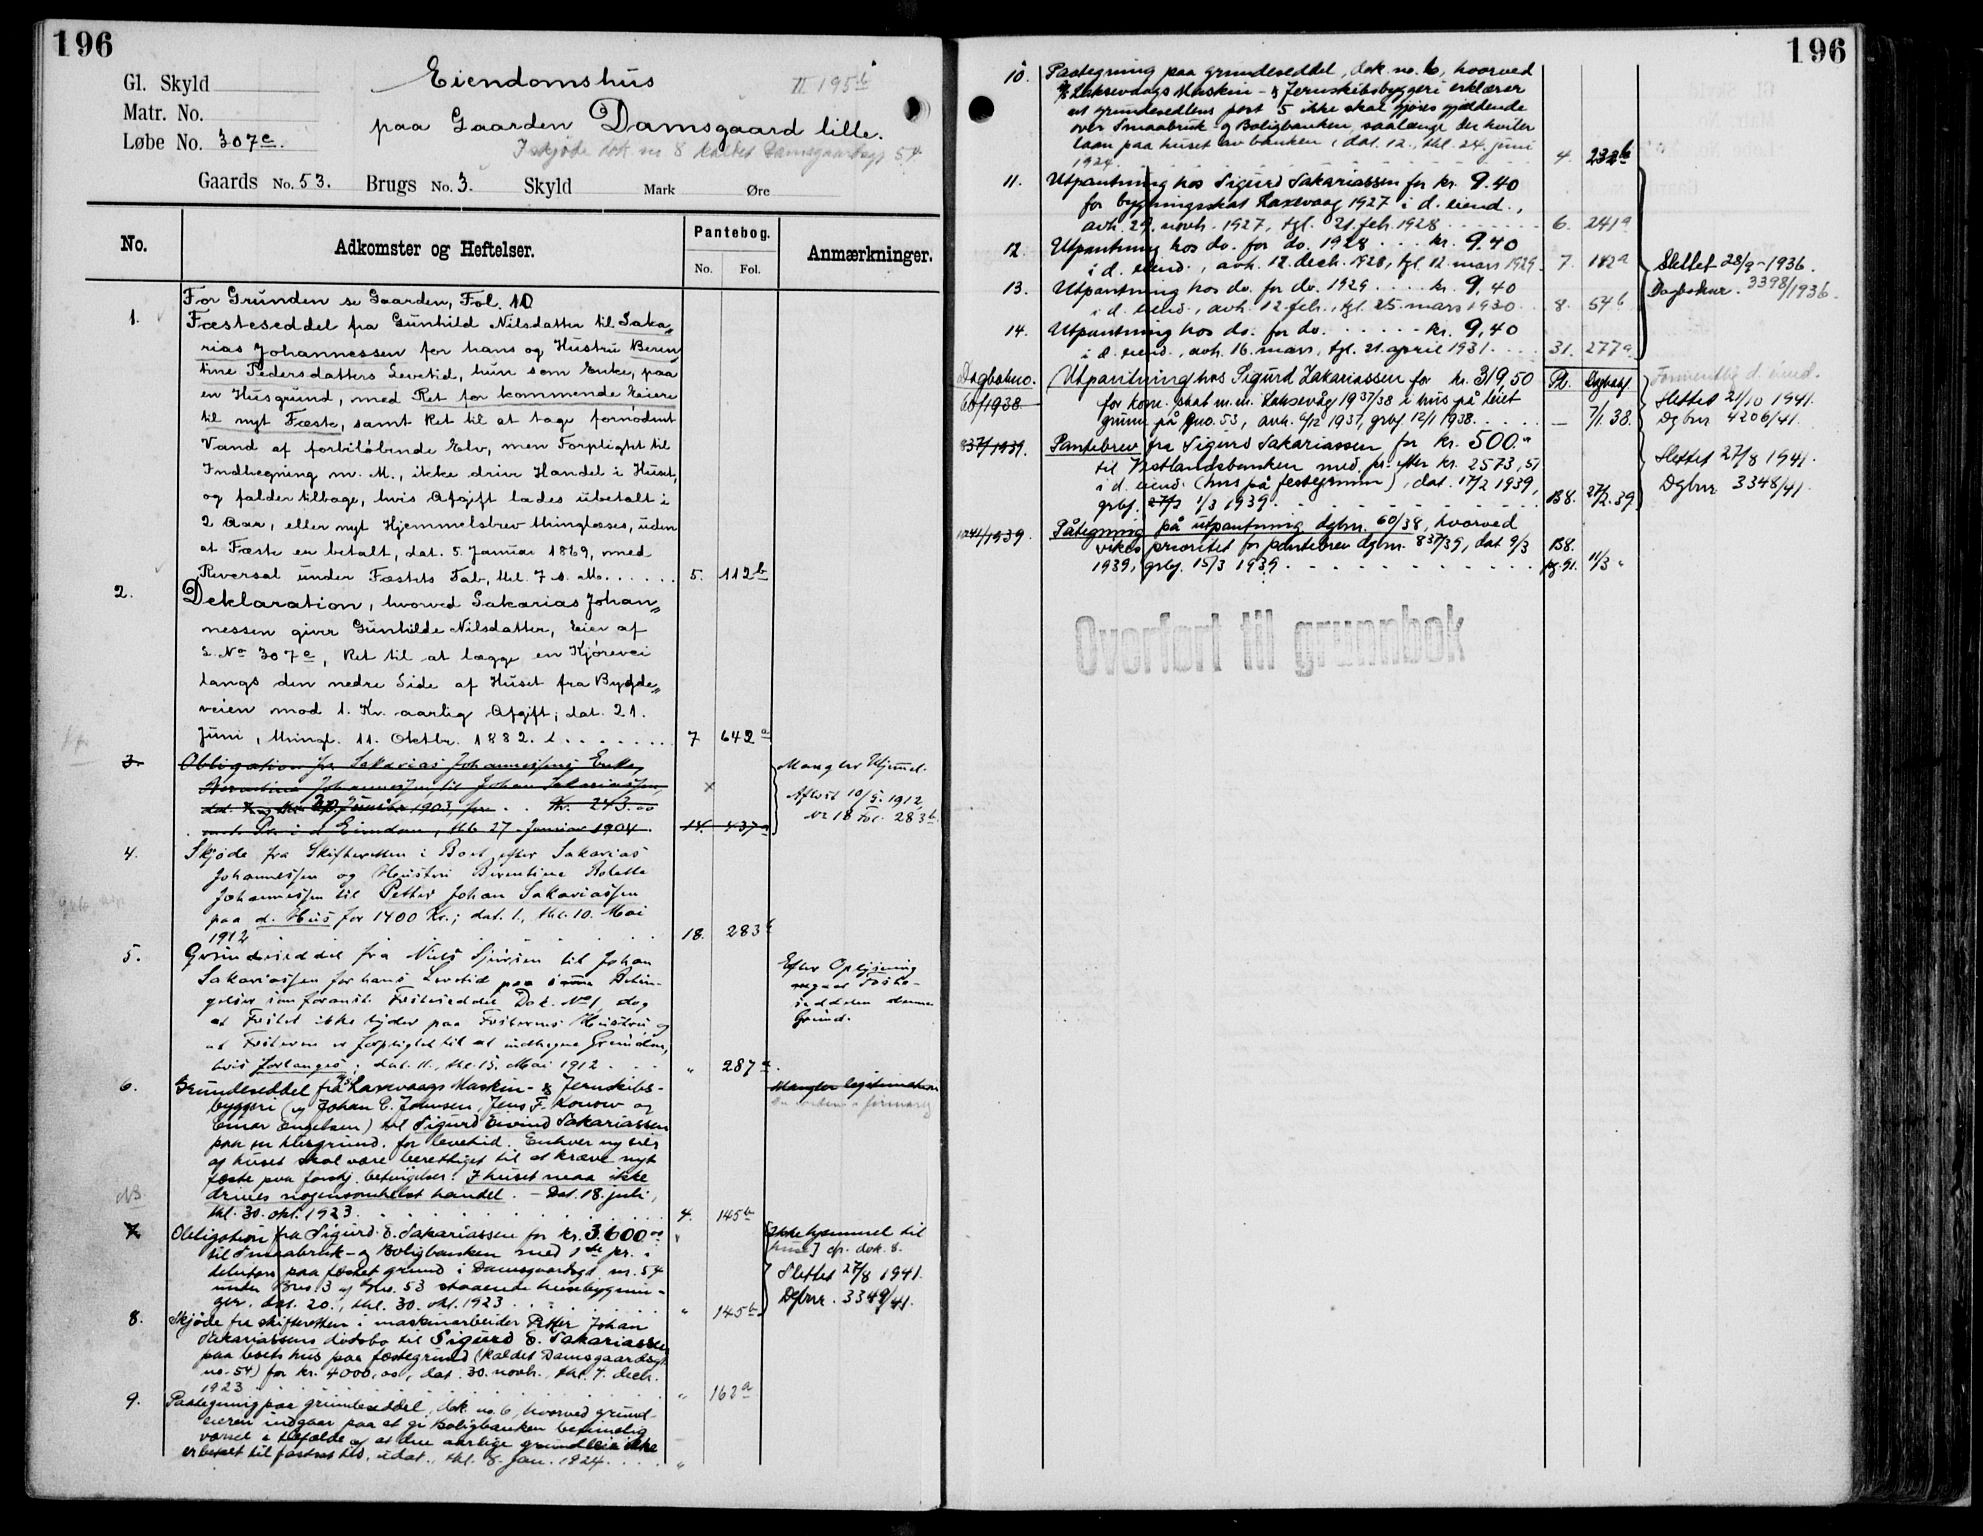 196
Gl. Skyld
Matr. No.
Løbe No. 307c.
Eiendomshus
II 195b
paa Gaarden Damsgaard lille.
I skjøde dok. no 8 kaldet Damsgaardsgt 54
Gaards No. 53. Brugs No. 3. Skyld Mark Øre
No.
Adkomster og Heftelser.
Pantebog.
No. Fol.
Anmærkninger.
For Grunden se Gaarden, Fol. 10
1. Fæsteseddel fra Gunhild Nilsdatter til Saka„
rias Johannessen for hans og Hustru Beren„
tine Pedersdatters Levetid, hun som Enke, paa
en Husgrund, med Ret for kommende Eiere
til nyt Fæste, samt Ret til at tage fornødent
Vand af forbiløbende Elv, men Forpligtet til
Indhegning m. M., ikke drive Handel i Huset,
og falder tilbage, hvis Afgift lades ubetalt i
2 Aar, eller nyt Hjemmelsbrev thinglæses, uden
at Fæste er betalt, dat. 5. Januar 1869, med
Reversal under Fæstets Tab, thl. 7 s. M. 5. 112b
2. Deklaration, hvorved Sakarias Johan„
nessen giver Gunhilde Nilsdatter, Eier af
L. No 307e, Ret til at lægge en Kjørevei
langs den nedre Side af Huset fra Bygde„
veien mod 1. Kr. aarlig Afgift; dat. 21.
Juni, thingl. 11. Oktbr. 1882. 7 642a
3. Obligation fra Sakarias Johannessens Enke,
Berentine Johannessen, til Johan Sakariassen,
1903, for Kr. 243.00
m. 1. Pr. i d. Eiendom, thl. 27 Januar 1904. 14. 437a
Mangler Hjemmel.
Aflæst 10/5. 1912,
No 18 Fol. 283b.
4. Skjøde fra Skifteretten i Boet efter Sakarias
Johannessen og Hustru Berentine Bolette
Johannessen til Petter Johan Sakariassen
paa d. Hus for 1400 Kr.; dat. 1., thl. 10. Mai
1912 18. 283b
5. Grundseddel fra Niels Sjursen til Johan
Sakariassen for hans Levetid paa samme Betin-
gelser som foranst. Fæsteseddel Dok. No 1, dog
at Fæstet ikke lyder paa Fæsterens Hustru, og
at Fæsteren er forpligtet til at indhegne Grunden,
hvis forlanges; dat. 11., thl. 15. Mai 1912 „ 287a
Efter Oplysning
angaar Fæste-
seddelen denne
Grund.
6. Grundeseddel fra A/S Laxevaags Maskin- & Jernskibs-
byggeri (v/ Johan C. Jansen, Jens F. Konow og
Einar Engelsen) til Sigurd Eivind Sakariassen
paa en husgrund for levetid. Enhver ny eier
af huset skal være berettiget til at kræve nyt
fæste paa forskj. betingelser. I huset maa ikke
drives nogensomhelst handel. – Dat. 18. juli,
thl. 30. okt. 1923 4. 145b
Mangler legitimation
7. Obligation fra Sigurd E. Sakariassen for kr. 3600.00
til Smaabruk- og Boligbanken med 1ste pr. i
debitors paa fæstet grund i Damsgaardsgt nr. 54
under Bno 3 af Gno. 53 staaende husebygnin-
ger. dat. 20., thl. 30. okt. 1923 „ 145b
[Ikke hjemmel til
huset] cfr. dok. 8.
Slettet 27/8 1941.
Dgbnr. 3349/41.
8. Skjøde fra skifteretten i maskinarbeider Petter Johan
Sakariassens dødsbo til Sigurd E. Sakariassen
paa boets hus paa fæstegrund (kaldet Damsgaardsgt
no. 54) for kr. 4000,00, dat. 30. novb., thl. 4. decb.
1923 „ 162a
9. Paategning paa grundeseddel, dok. no. 6, hvorved grund-
eieren indgaar paa at gi Boligbanken betimelig
varsel i tilfælde af at den aarlige grundleie ikke
er betalt til fastsat tid, udat., thl. 8. jan. 1924. „
196
10. Paategning paa grundeseddel, dok. no. 6, hvorved
A/S Laksevaags Maskin- & Jernskibsbyggeri erklærer
at grundesedlens post 5 ikke skal gjøres gjældende
over Smaabruk- og Boligbanken, saalænge der hviler
laan paa huset av banken, dat. 12., thl. 24. juni
1924 4. 232b
11. Utpantning hos Sigurd Sakariassen for kr. 9.40
for bygningsskat Laxevaag 1927 i d. eiend.,
avh. 29. novb. 1927, tgl. 21. feb. 1928 6. 241a
12 Utpantning hos do. for do. 1928 kr. 9.40
i d. eiend., avh. 12. decb. 1928, tgl. 12. mars 1929 7. 142a
13. Utpantning hos do. for do. 1929 kr. 9.40
i d. eiend., avh. 12. feb., tgl. 25. mars 1930 8. 54b
14. Utpantning hos do. for do. kr. 9,40
i d. eiend., avh. 16. mars, tgl. 21. april 1931. 31. 277a
Slettet 28/9-1936.
Dagboknr. 3398/1936.
Dagbokno. Pb. Dagbokf
60/1938. Utpantning hos Sigurd Zakariassen for kr. 319,50
for kom. skat m.m. Laksevåg 1937/38 i hus på leiet
grunn på gno. 53, avh. 6/12 1937, grbf. 12/1 1938. — 7/1.38.
Slettet 21/10 1941.
Dgbnr 4206/41.
837/1939. Pantebrev fra Sigurd Sakariassen for kr. 500.-
til Vestlandsbanken med pr. efter kr. 2573,51
i d. eiend. (hus på festegrunn), dat. 17/2 1939,
grbf. 27/2 1/3 1939. B8. 27/2.39
Slettet 27/8 1941.
Dgbnr 3348/41.
1041/1939. Påtegning på utpantning dgbnr. 60/38, hvorved
vikes prioritet for pantebrev dgbnr. 837/39, dat. 9/3
1939, grbf. 15/3 1939. B8. 11/3 „
Overført til grunnbok